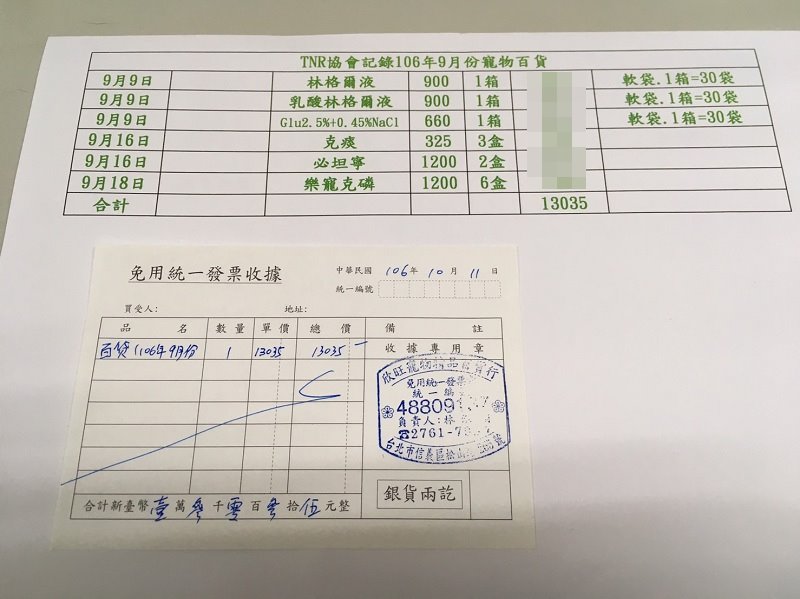 TNR協會記錄106年9月份寵物百貨
9月9日 林格爾液 900 1箱 軟袋.1箱=30袋
9月9日 乳酸林格爾液 900 1箱 軟袋.1箱=30袋
9月9日 Glu2.5%+0.45%NaCl 660 1箱 軟袋.1箱=30袋
9月16日 克痰 325 3盒
9月16日 必坦寧 1200 2盒
9月18日 樂寵克磷 1200 6盒
合計 13035
免用統一發票收據
中華民國 106年 10月 11日
統一編號
買受人: 地址:
品名 數量 單價 總價 備註
百貨(106年9月份 1 13035 13035 收據專用章
欣旺寵物精品百貨行
免用統一發票
統一編
48809
負責人:林
☎2761-7
台北市信義區松山
銀貨兩訖
合計新臺幣壹萬參千零百參拾伍元整